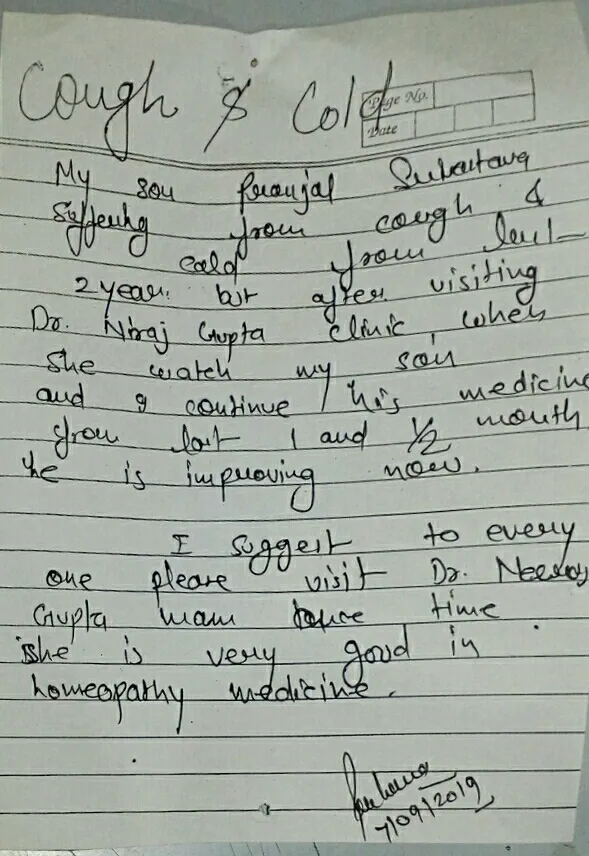 Cough & Cold
Page No.
Date
My son Pranjal
suffering from cough &
cold from last
2 year. but after visiting
Dr. Niraj Gupta clinic when
she watch my son
and I continue his medicine
from last 1 and 1/2 month
he is improving now.
I suggest to every
one please visit Dr. Neeraj
Gupta mam once time
she is very good in
homeopathy medicine.
7/09/2019